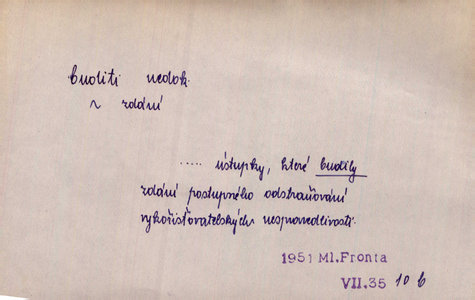 buditi nedok.
~ zdání
..... ústupky, které budily
zdání postupného odstraňování
vykořisťovatelských nespravedlivostí.
1951 Ml.Fronta
VII.35 10 b